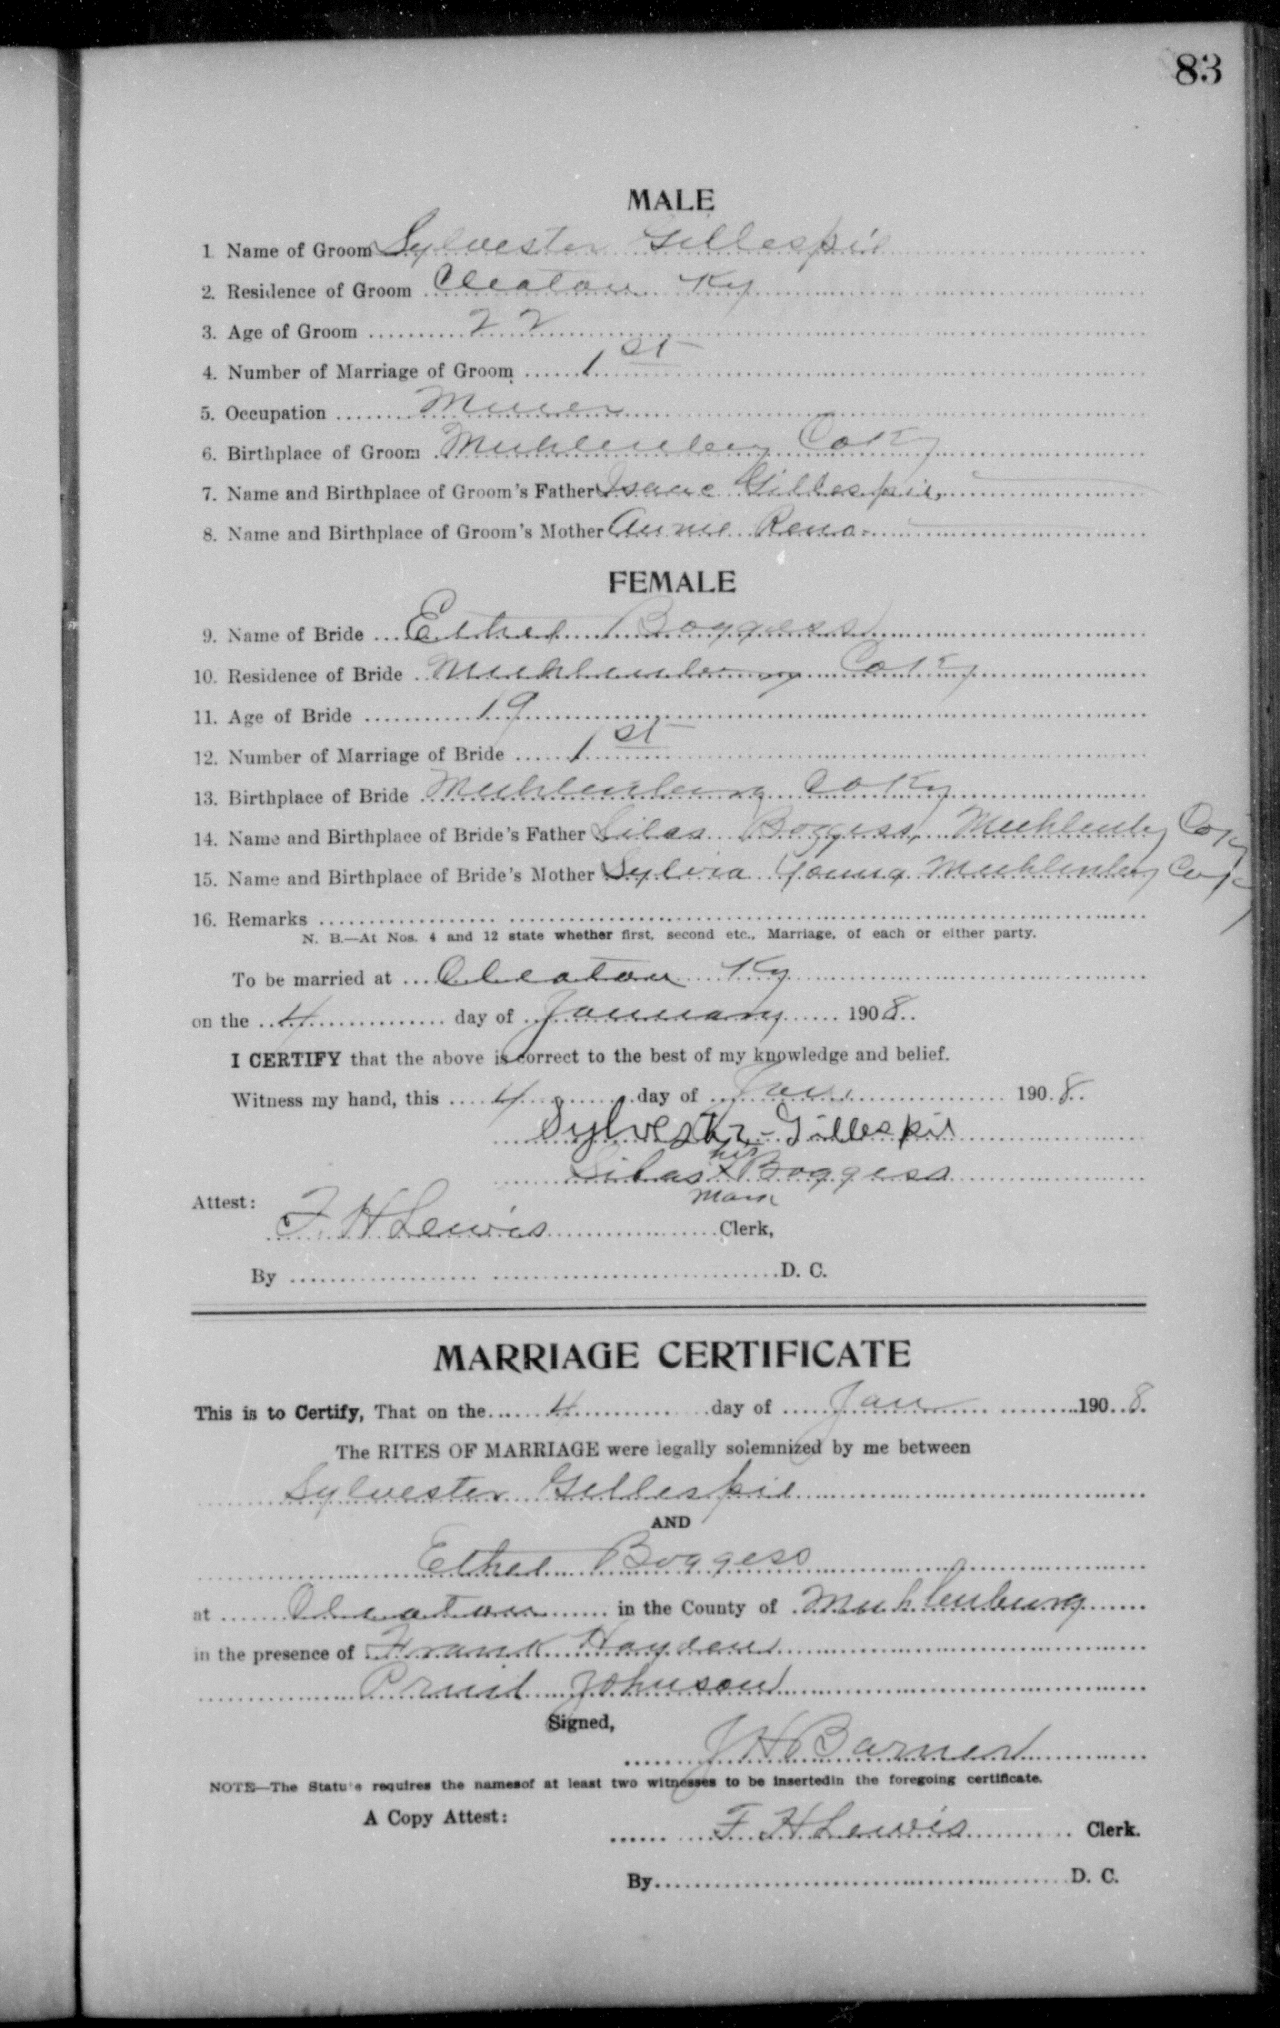 83
MALE
1 Name of Groom Sylvester Gillespie
2. Residence of Groom Cleaton Ky
3. Age of Groom 22
4. Number of Marriage of Groom 1st
5. Occupation Miner
6. Birthplace of Groom Muhlenberg Co Ky
7. Name and Birthplace of Groom's Father Isaac Gillespie,
8. Name and Birthplace of Groom's Mother Annie Reno
FEMALE
9. Name of Bride Ethel Boggess
10. Residence of Bride Muhlenberg Co Ky
11. Age of Bride 19
12. Number of Marriage of Bride 1st
13. Birthplace of Bride Muhlenberg Co Ky
14. Name and Birthplace of Bride's Father Silas Boggess, Muhlenbg Co Ky
15. Name and Birthplace of Bride's Mother Sylvia Young Muhlenbg Co Ky
16. Remarks
N. B.—At Nos. 4 and 12 state whether first, second etc., Marriage, of each or either party.
To be married at Cleaton Ky
on the 4 day of January 1908
I CERTIFY that the above is correct to the best of my knowledge and belief.
Witness my hand, this 4 day of Jan 1908
Sylvester Gillespie
his
Silas X Boggess
mark
Attest:
F H Lewis Clerk,
By D. C.
MARRIAGE CERTIFICATE
This is to Certify, That on the 4 day of Jan 1908.
The RITES OF MARRIAGE were legally solemnized by me between
Sylvester Gillespie
AND
Ethel Boggess
at Cleaton in the County of Muhlenburg
in the presence of Frank Hayden
Johnson
Signed,
J H Barnes
NOTE—The Statute requires the namesof at least two witnesses to be insertedin the foregoing certificate.
A Copy Attest:
F H Lewis Clerk.
By D. C.